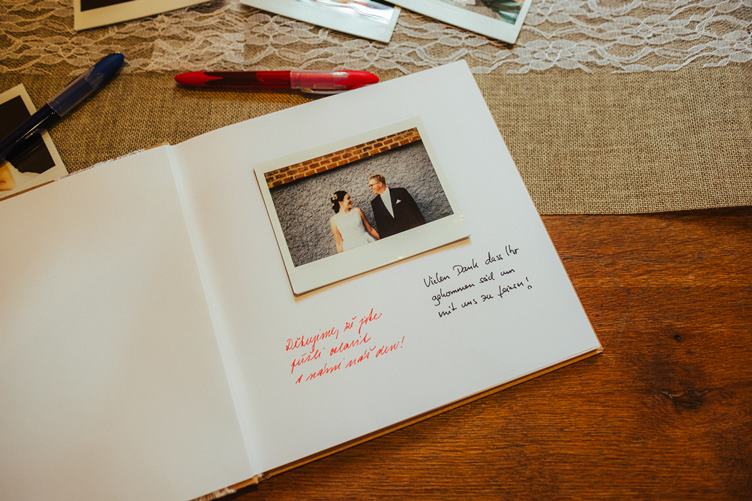 Děkujeme, že jste
přišli oslavit
s námi náš den!
Vielen Dank dass Ihr
gekommen seid um
mit uns zu feiern!